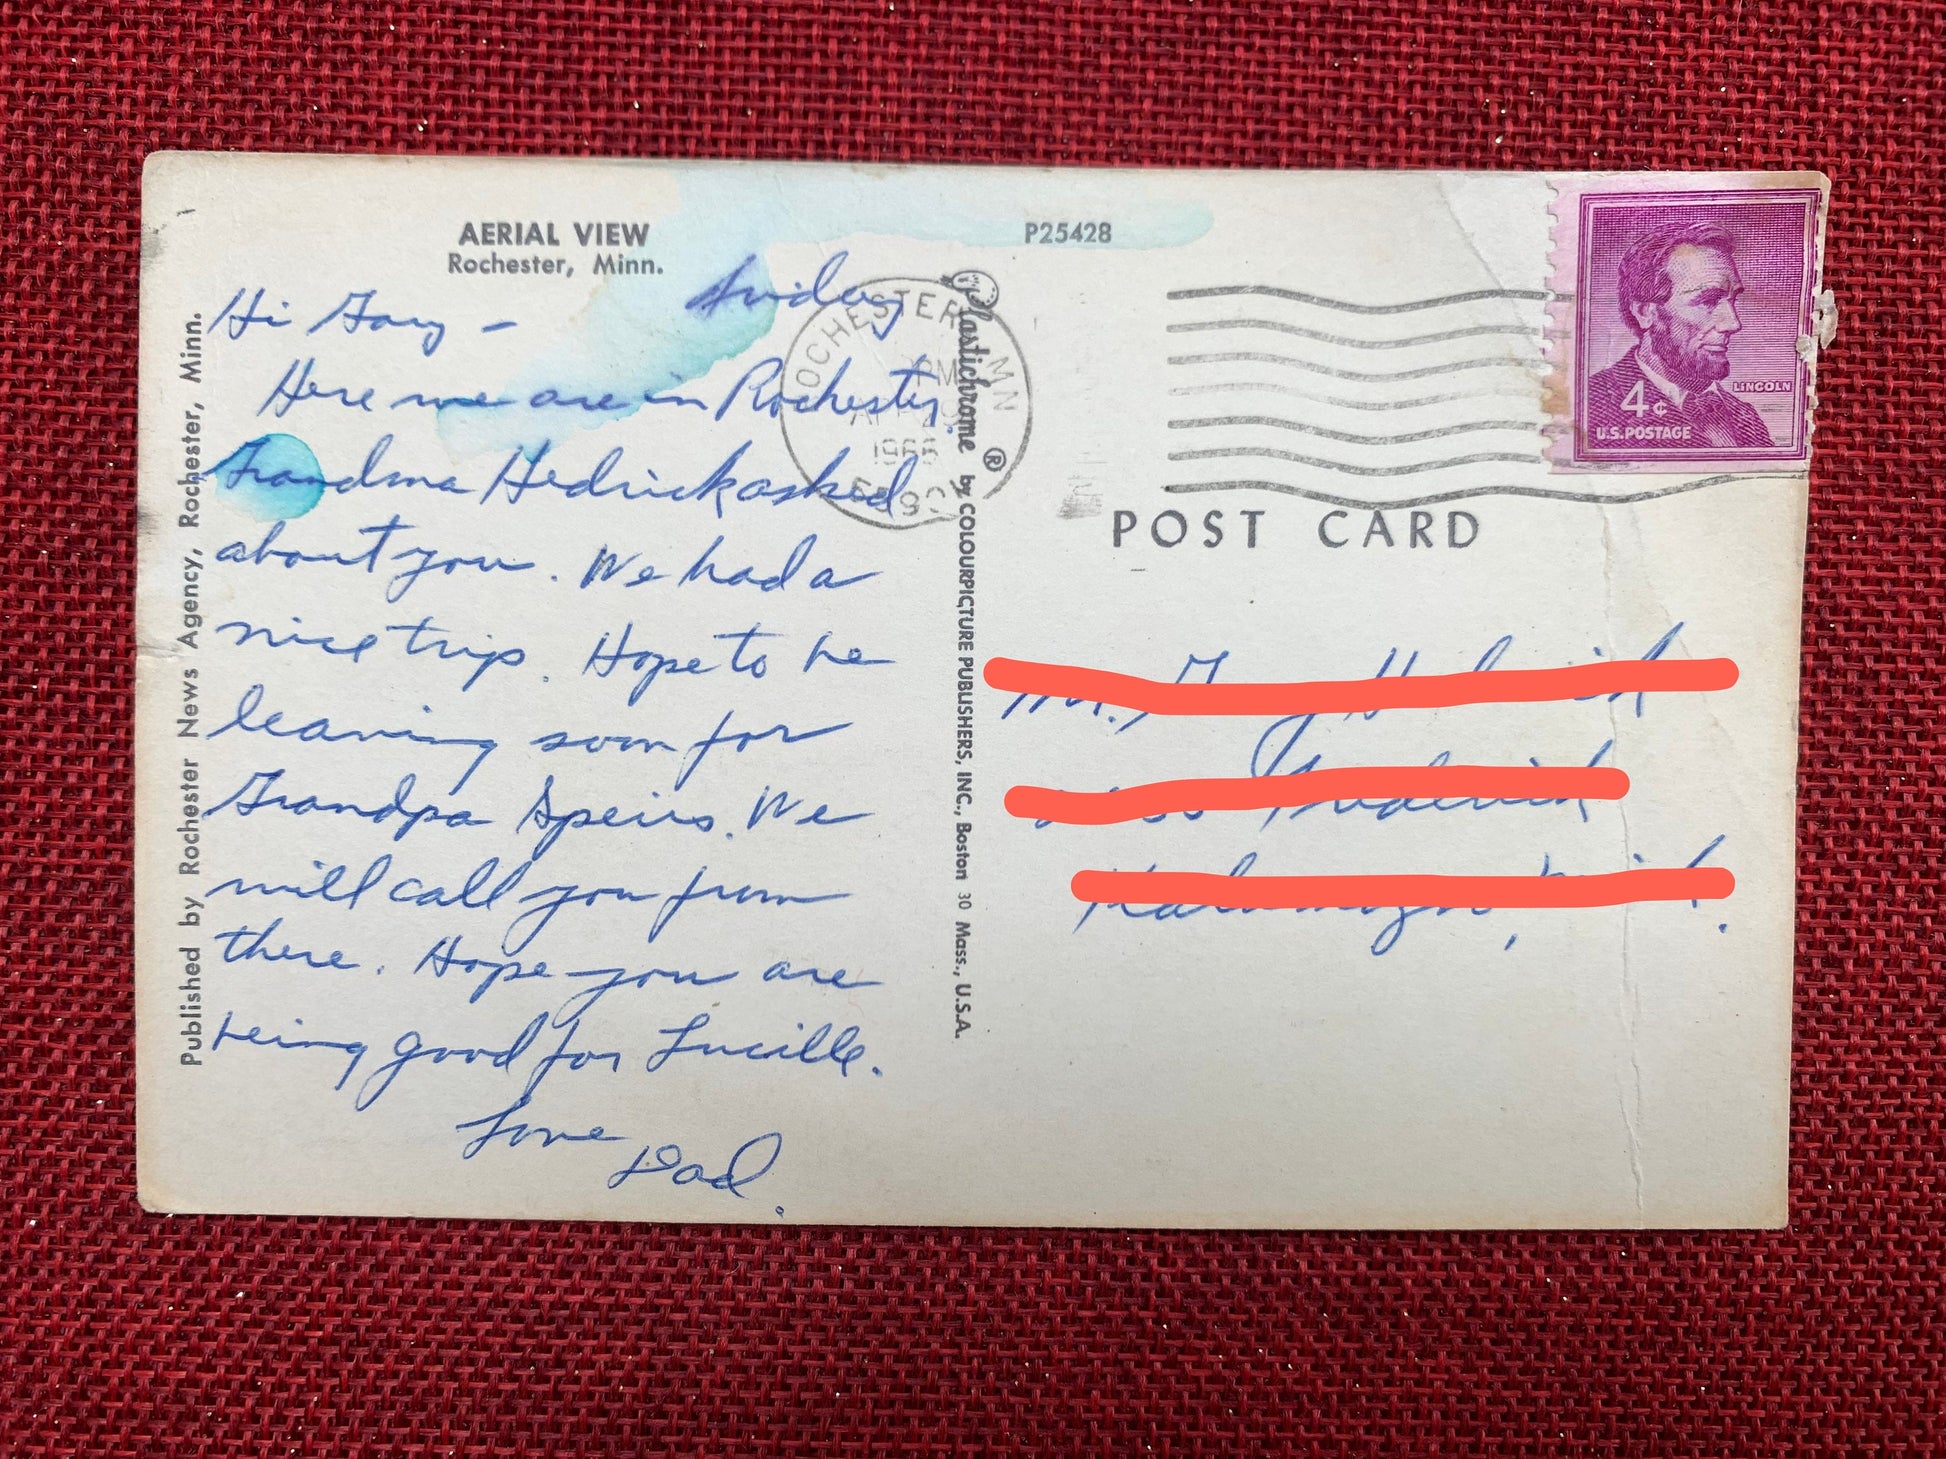 AERIAL VIEW
Rochester, Minn.
P25428
Friday
Hi Gary -
Here we are in Rochester.
Grandma Hedrick asked
about you. We had a
nice trip. Hope to be
leaving soon for
Grandpa Speirs. We
will call you from
there. Hope you are
being good for Lucille.
Love
Dad.
Published by Rochester News Agency, Rochester, Minn.
Plastichrome ® by COLOURPICTURE PUBLISHERS, INC., Boston 30 Mass., U.S.A.
ROCHESTER MN
PM
1965
559
LINCOLN
4¢
U.S. POSTAGE
POST CARD